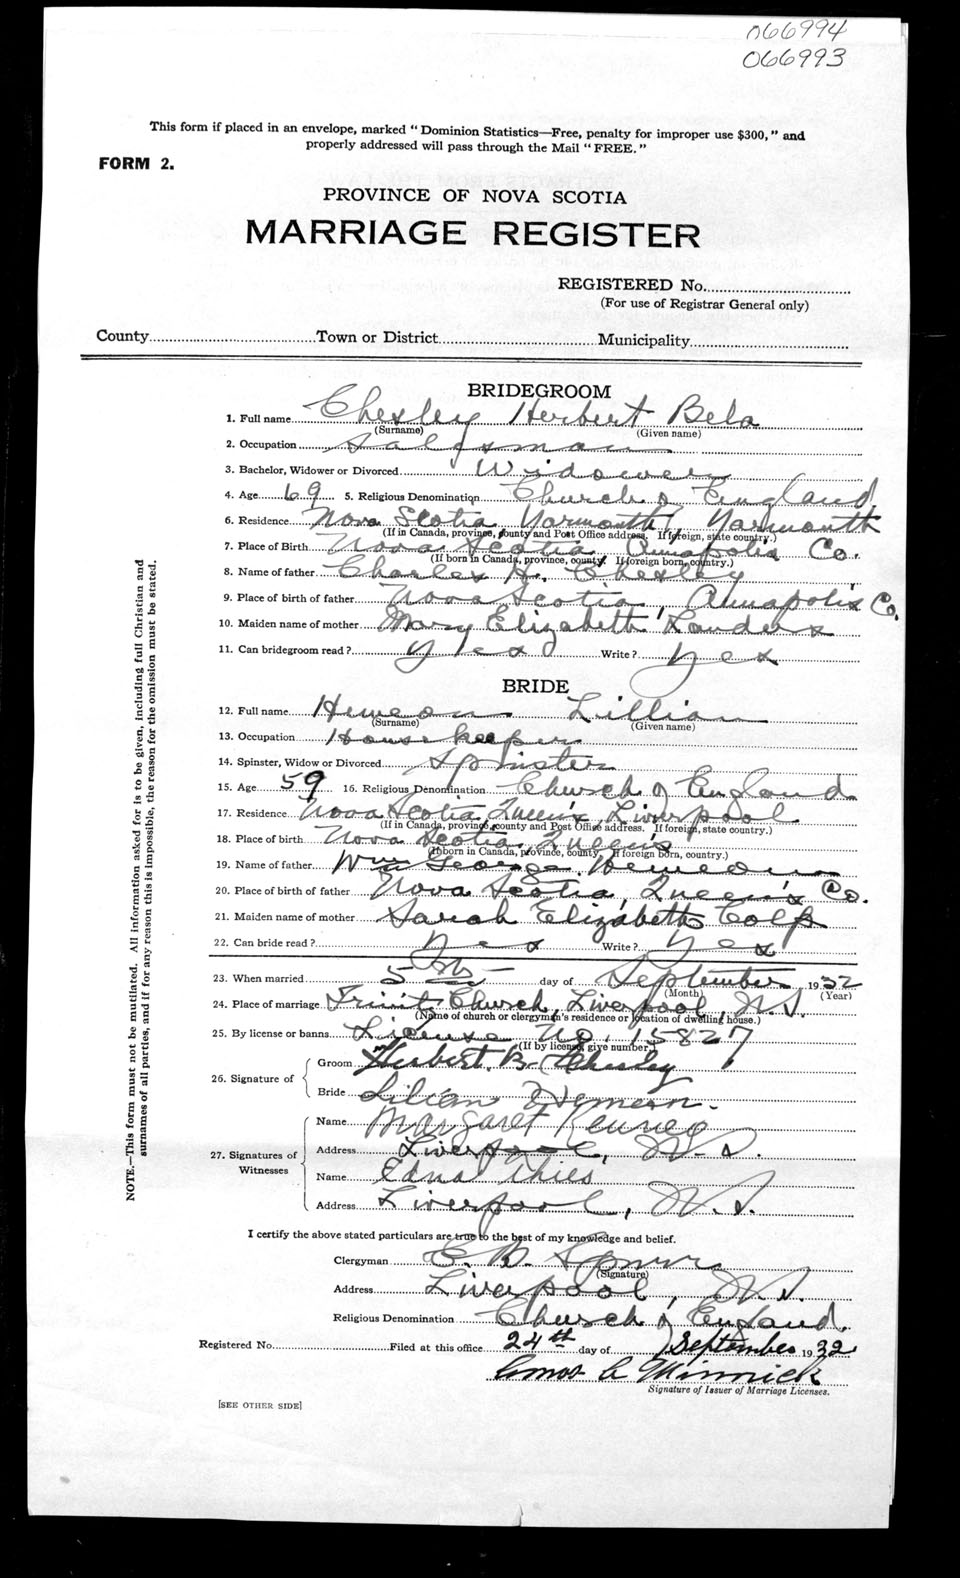 066994
066993
This form if placed in an envelope, marked "Dominion Statistics—Free, penalty for improper use $300," and
properly addressed will pass through the Mail "FREE."
FORM 2.
PROVINCE OF NOVA SCOTIA
MARRIAGE REGISTER
REGISTERED No.
(For use of Registrar General only)
County Town or District Municipality
BRIDEGROOM
1. Full name Chesley Herbert Bela
(Surname) (Given name)
2. Occupation Salesman
3. Bachelor, Widower or Divorced Widower
4. Age 69 5. Religious Denomination Church of England
6. Residence Nova Scotia Yarmouth, Yarmouth
(If in Canada, province, county and Post Office address. If foreign, state country.)
7. Place of Birth Nova Scotia, Annapolis Co.
(If born in Canada, province, county. If foreign born, country.)
8. Name of father Charles H. Chesley
9. Place of birth of father Nova Scotia, Annapolis Co.
10. Maiden name of mother Mary Elizabeth Landers
11. Can bridegroom read? Yes Write? Yes
BRIDE
12. Full name Hemeon Lillian
(Surname) (Given name)
13. Occupation Housekeeper
14. Spinster, Widow or Divorced Spinster
15. Age 59 16. Religious Denomination Church of England
17. Residence Nova Scotia, Queen's, Liverpool
(If in Canada, province, county and Post Office address. If foreign, state country.)
18. Place of birth Nova Scotia, Queen's
(If born in Canada, province, county. If foreign born, country.)
19. Name of father Wm George Hemeon
20. Place of birth of father Nova Scotia, Queen's Co.
21. Maiden name of mother Sarah Elizabeth Colp
22. Can bride read? Yes Write? Yes
23. When married 5th day of September 1932
(Month) (Year)
24. Place of marriage Trinit Church, Liverpool, N.S.
(Name of church or clergyman's residence or location of dwelling house.)
25. By license or banns License No. 15827
(If by license, give number)
26. Signature of
Groom Herbert. B. Chesley
Bride Lilian Hemeon.
27. Signatures of Witnesses
Name Margaret
Address Liverpool, N.S.
Name Edna
Address Liverpool, N.S.
I certify the above stated particulars are true to the best of my knowledge and belief.
Clergyman C. B.
(Signature)
Address Liverpool, N.S.
Religious Denomination Church of England.
Registered No. Filed at this office 24th day of September 1932
Amos A Minnick
Signature of Issuer of Marriage Licenses.
[SEE OTHER SIDE]
NOTE.—This form must not be mutilated. All information asked for is to be given, including full Christian and
surnames of all parties, and if for any reason this is impossible, the reason for the omission must be stated.